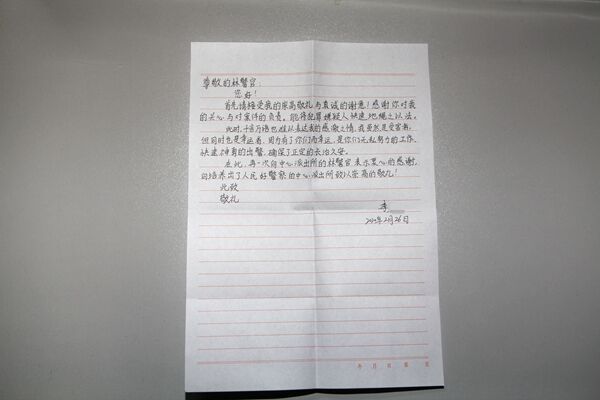 尊敬的林警官:
您好!
首先请接受我的崇高敬礼与真诚的谢意!感谢你对我
的关心与对案件的负责。能将犯罪嫌疑人快速地绳之以法。
此时,千言万语也难以表达我的感激之情,我虽然是受害者,
但同时也是幸运者,因为有了你们而幸运,是你们无私努力的工作、
快速神勇的出警,确保了正定的长治久安。
在此,再一次向中心派出所的林警官表示衷心的感谢,
向培养出了人民好警察的中心派出所致以崇高的敬礼!
此致
敬礼
李
2020年2月26日
年 月 日 第 页